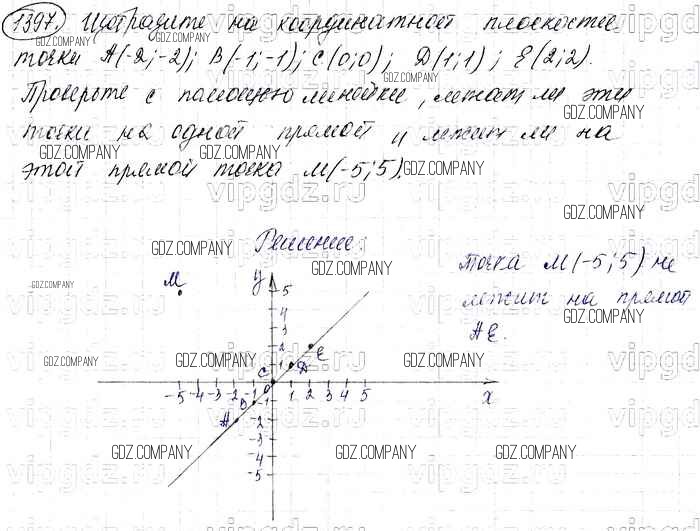 1397. Изобразите на координатной плоскости
точки A(-2;-2); B(-1;-1); C(0;0); D(1;1); E(2;2).
Проверьте с помощью линейки, лежат ли эти
точки на одной прямой и лежит ли на
этой прямой точка M(-5;5).
Решение:
точка M(-5;5) не
лежит на прямой
AE.
M
y
5
4
3
2
1
E
D
C
0
-5 -4 -3 -2 -1 1 2 3 4 5
x
B
A
-1
-2
-3
-4
-5
GDZ.COMPANY
vipgdz.ru